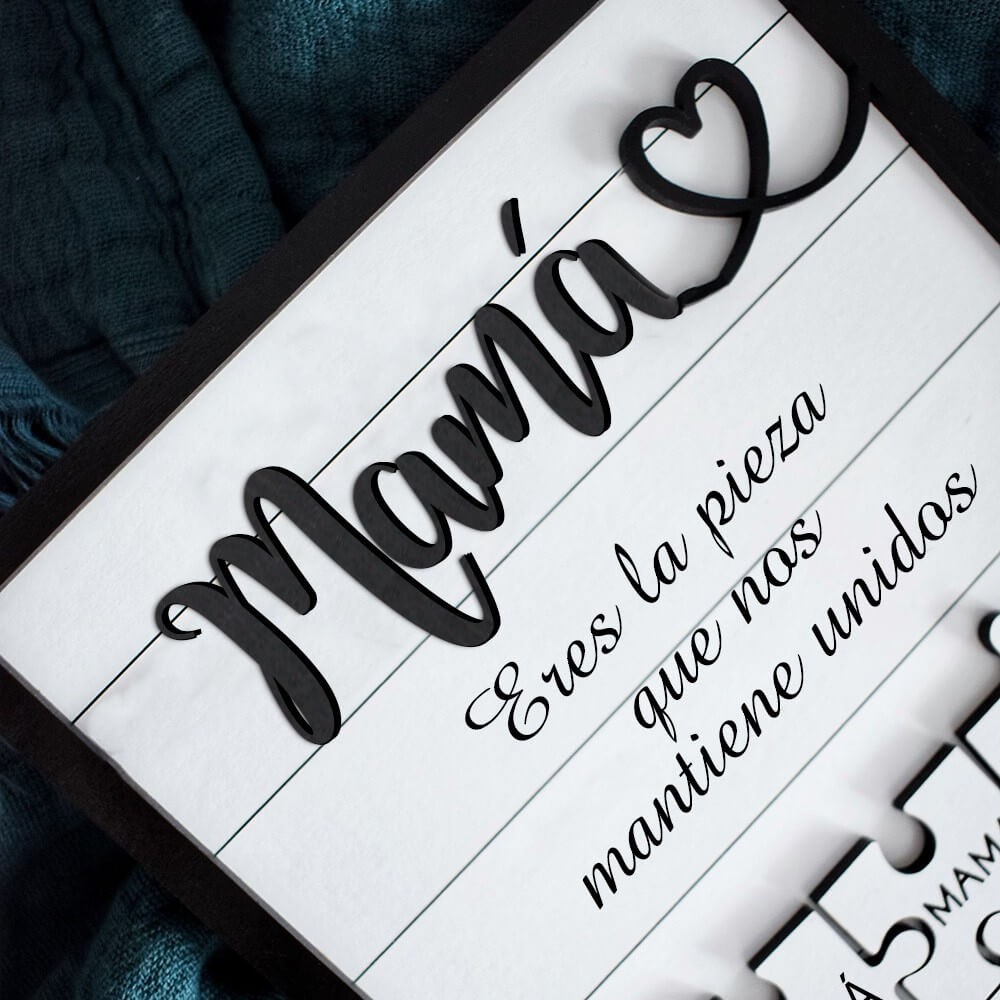 Mamá
Eres la pieza
que nos
mantiene unidos